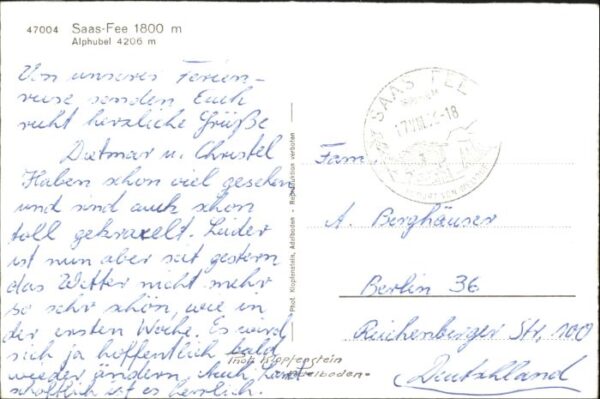 47004 Saas-Fee 1800 m
Alphubel 4206 m
Von unseres Ferien-
reise senden Euch
recht herzliche Grüße
Dietmar u. Christel
Haben schon viel gesehen
und sind auch schon
toll gekraxelt. Leider
ist nun aber seit gestern
das Wetter nicht mehr
so sehr schön, wie in
der ersten Woche. Es wird
sich ja hoffentlich bald
wieder ändern. Auch Land-
schaftlich ist es herrlich.
Phot. Klopfenstein, Adelboden - Reproduktion verboten
Phot. Klopfenstein
Adelboden
SAAS-FEE
-18
Fam.
A. Berghäuser
Berlin 36
Reichenberger Str. 100
Deutschland